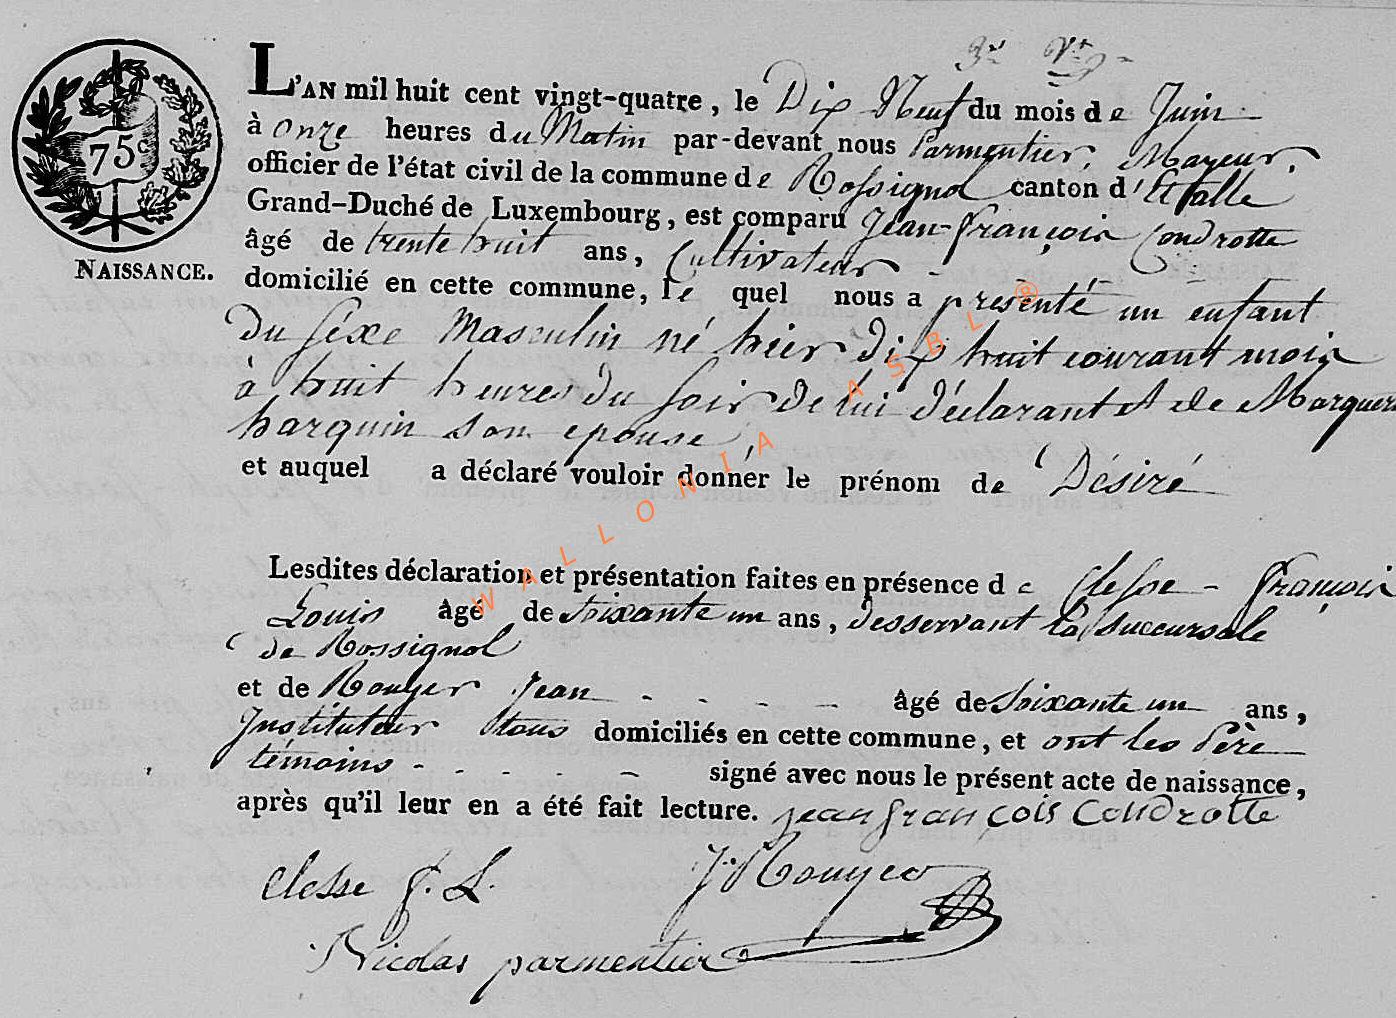 L'AN mil huit cent vingt-quatre, le Dix Neuf du mois de Juin
à onze heures du Matin par-devant nous Parmentier, Mayeur,
officier de l'état civil de la commune de Rossignol canton d'Etalle
Grand-Duché de Luxembourg, est comparu Jean-François Condrotte
âgé de trente huit ans, Cultivateur
domicilié en cette commune, le quel nous a présenté un enfant
du séxe Masculin né hier dix huit courant mois
à huit heures du soir de lui déclarant et de Marguer
harquin son epouse,
et auquel a déclaré vouloir donner le prénom de Désiré
Lesdites déclaration et présentation faites en présence de Clesse - François
Louis âgé de soixante un ans, desservant la succursale
de Rossignol
et de Rouyer Jean - - - - âgé de soixante un ans,
Instituteur tous domiciliés en cette commune, et ont les Père
témoins - - - - - signé avec nous le présent acte de naissance,
après qu'il leur en a été fait lecture. jean françois Condrotte
Clesse f. L. J. Rouyer
Nicolas parmentier
75c
NAISSANCE.
WALLONIA ASBL ®